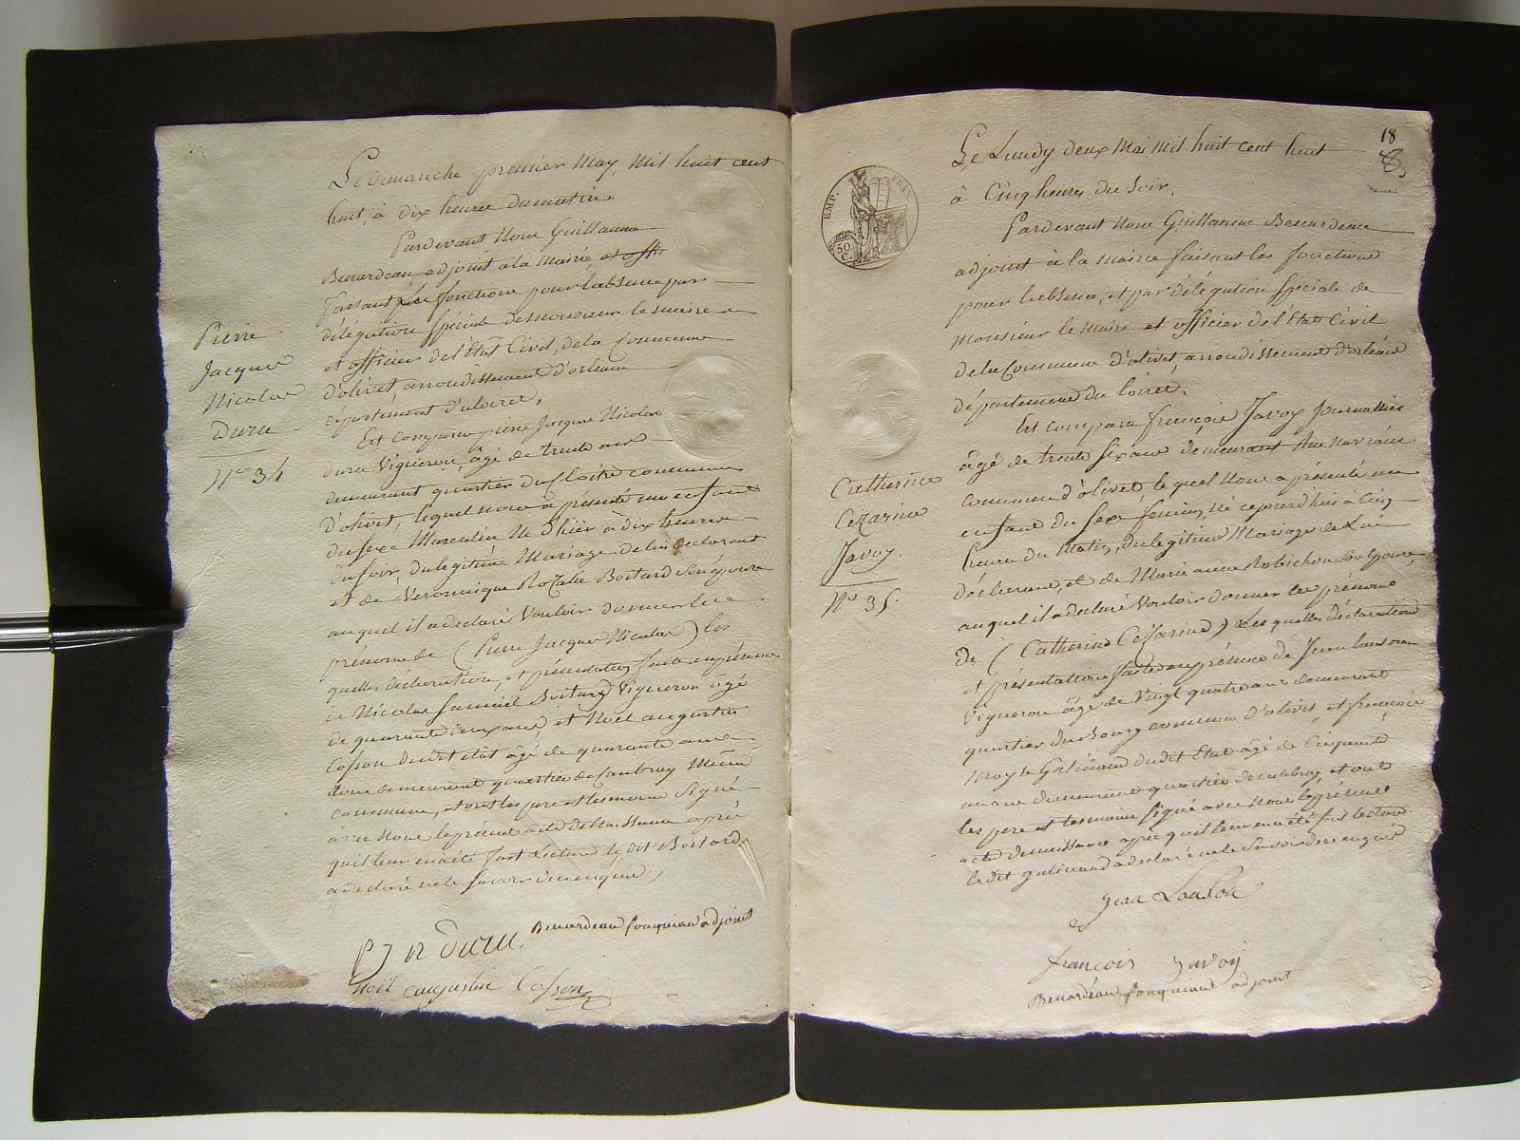 Le Dimanche premier May, Mil huit cent
huit, à dix heures du matin
Pardevant Nous Guillaume
Benardeau adjoint à la Mairie, et offi
faisant les fonctions pour l'absence par
délégation spéciale de monsieur le maire
et officier de l'état Civil, de la Commune
d'olivet arroudissement d'orleans
département du loiret,
Est Comparu pierre Jacque Nicolas
duru Vigneron, âgé de trente ans
demeurant quartier du Cloitre commune
d'olivet, lequel nous a présenté un enfant
du sexe Masculin Né d'hier à dix heures
du soir, du legitime Mariage de lui declarant
et de Veronique Rozalie Boitard Son épouse
auquel il a declaré Vouloir donner les
prénoms de (Pierre Jacques Nicolas) les
quelles déclaration, et présentation faite en présence
de Nicolas Samuel Boitard Vigneron âgé
de quarante deux ans, et Noël augustin
Cosson dudit état âgé de quarante ans
tous demeurant quartier de Caubray Meme
commune, et ont les pere et temoins Signé
avec Nous le présent acte de Naissance après
qu'il leur en a été fait Lecture le dit Boitard
a declaré ne le Savoir de ce enquis
Pierre
Jacque
Nicolas
Duru
N° 34
P J N Duru
Benardeau fouqueau adjoint
Noël augustin Cosson
18
EMP.
FRAN
50
C.
Le Lundy deux Mai Mil huit cent huit
à Cinq heures du Soir,
Pardevant Nous Guillaume Benardeau
adjoint à la mairie faisant les fonctions
pour l'absence, et par délégation spéciale de
monsieur le Maire et officier de l'Etat Civil
de la Commune d'olivet, arroudissement d'orleans
département du loiret,
Est comparu françois Javoy Journallier
âgé de trente six ans demeurant
commune d'olivet, le quel Nous a présenté un
enfant du sexe feminin, Né cejourd'hui à Cinq
heures du Matin, du legitime Mariage de Lui
déclarant, et de Marie anne Robichon Son épouse,
auquel il a declaré Vouloir donner les prénoms
de (Catherine Cessarine) Les quelles déclaration
et présentation faite en présence de Jean Lanson
Vigneron âgé de Vingt quatre ans demeurant
quartier du Bourg commune d'olivet, et françois
dudit Etat âgé de Cinquante
un ans demeurant quartier de Caubray, et ont
les pere et temoins signé avec Nous le présent
acte de naissance après qu'il leur en a été fait lecture
le dit a declaré ne le Savoir de ce enquis
Catherine
Cezarine
Javoy.
N° 35.
Jean Lanson
francois Javoy
Benardeau fouqueau adjoint